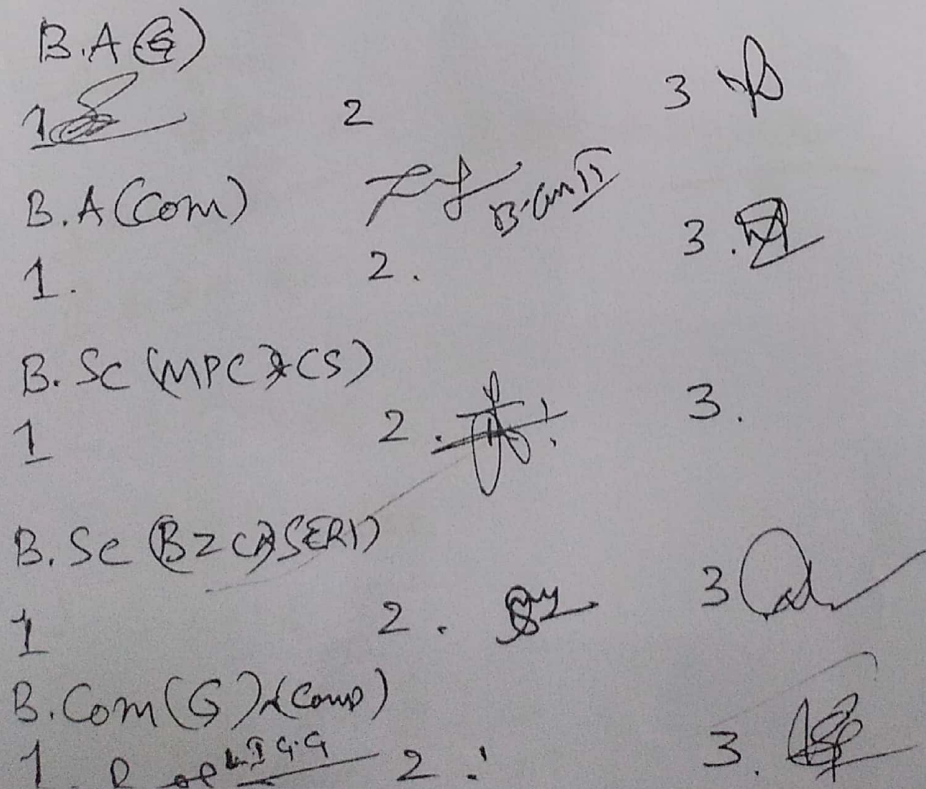 B.A (G)
1 2 3
B.A (Com) B.Com II
1. 2. 3.
B. Sc (MPC & CS)
1 2. 3.
B. Sc (BZC & SERI)
1 2. 3
B. Com (G) & (Comp)
1. 2. 3.